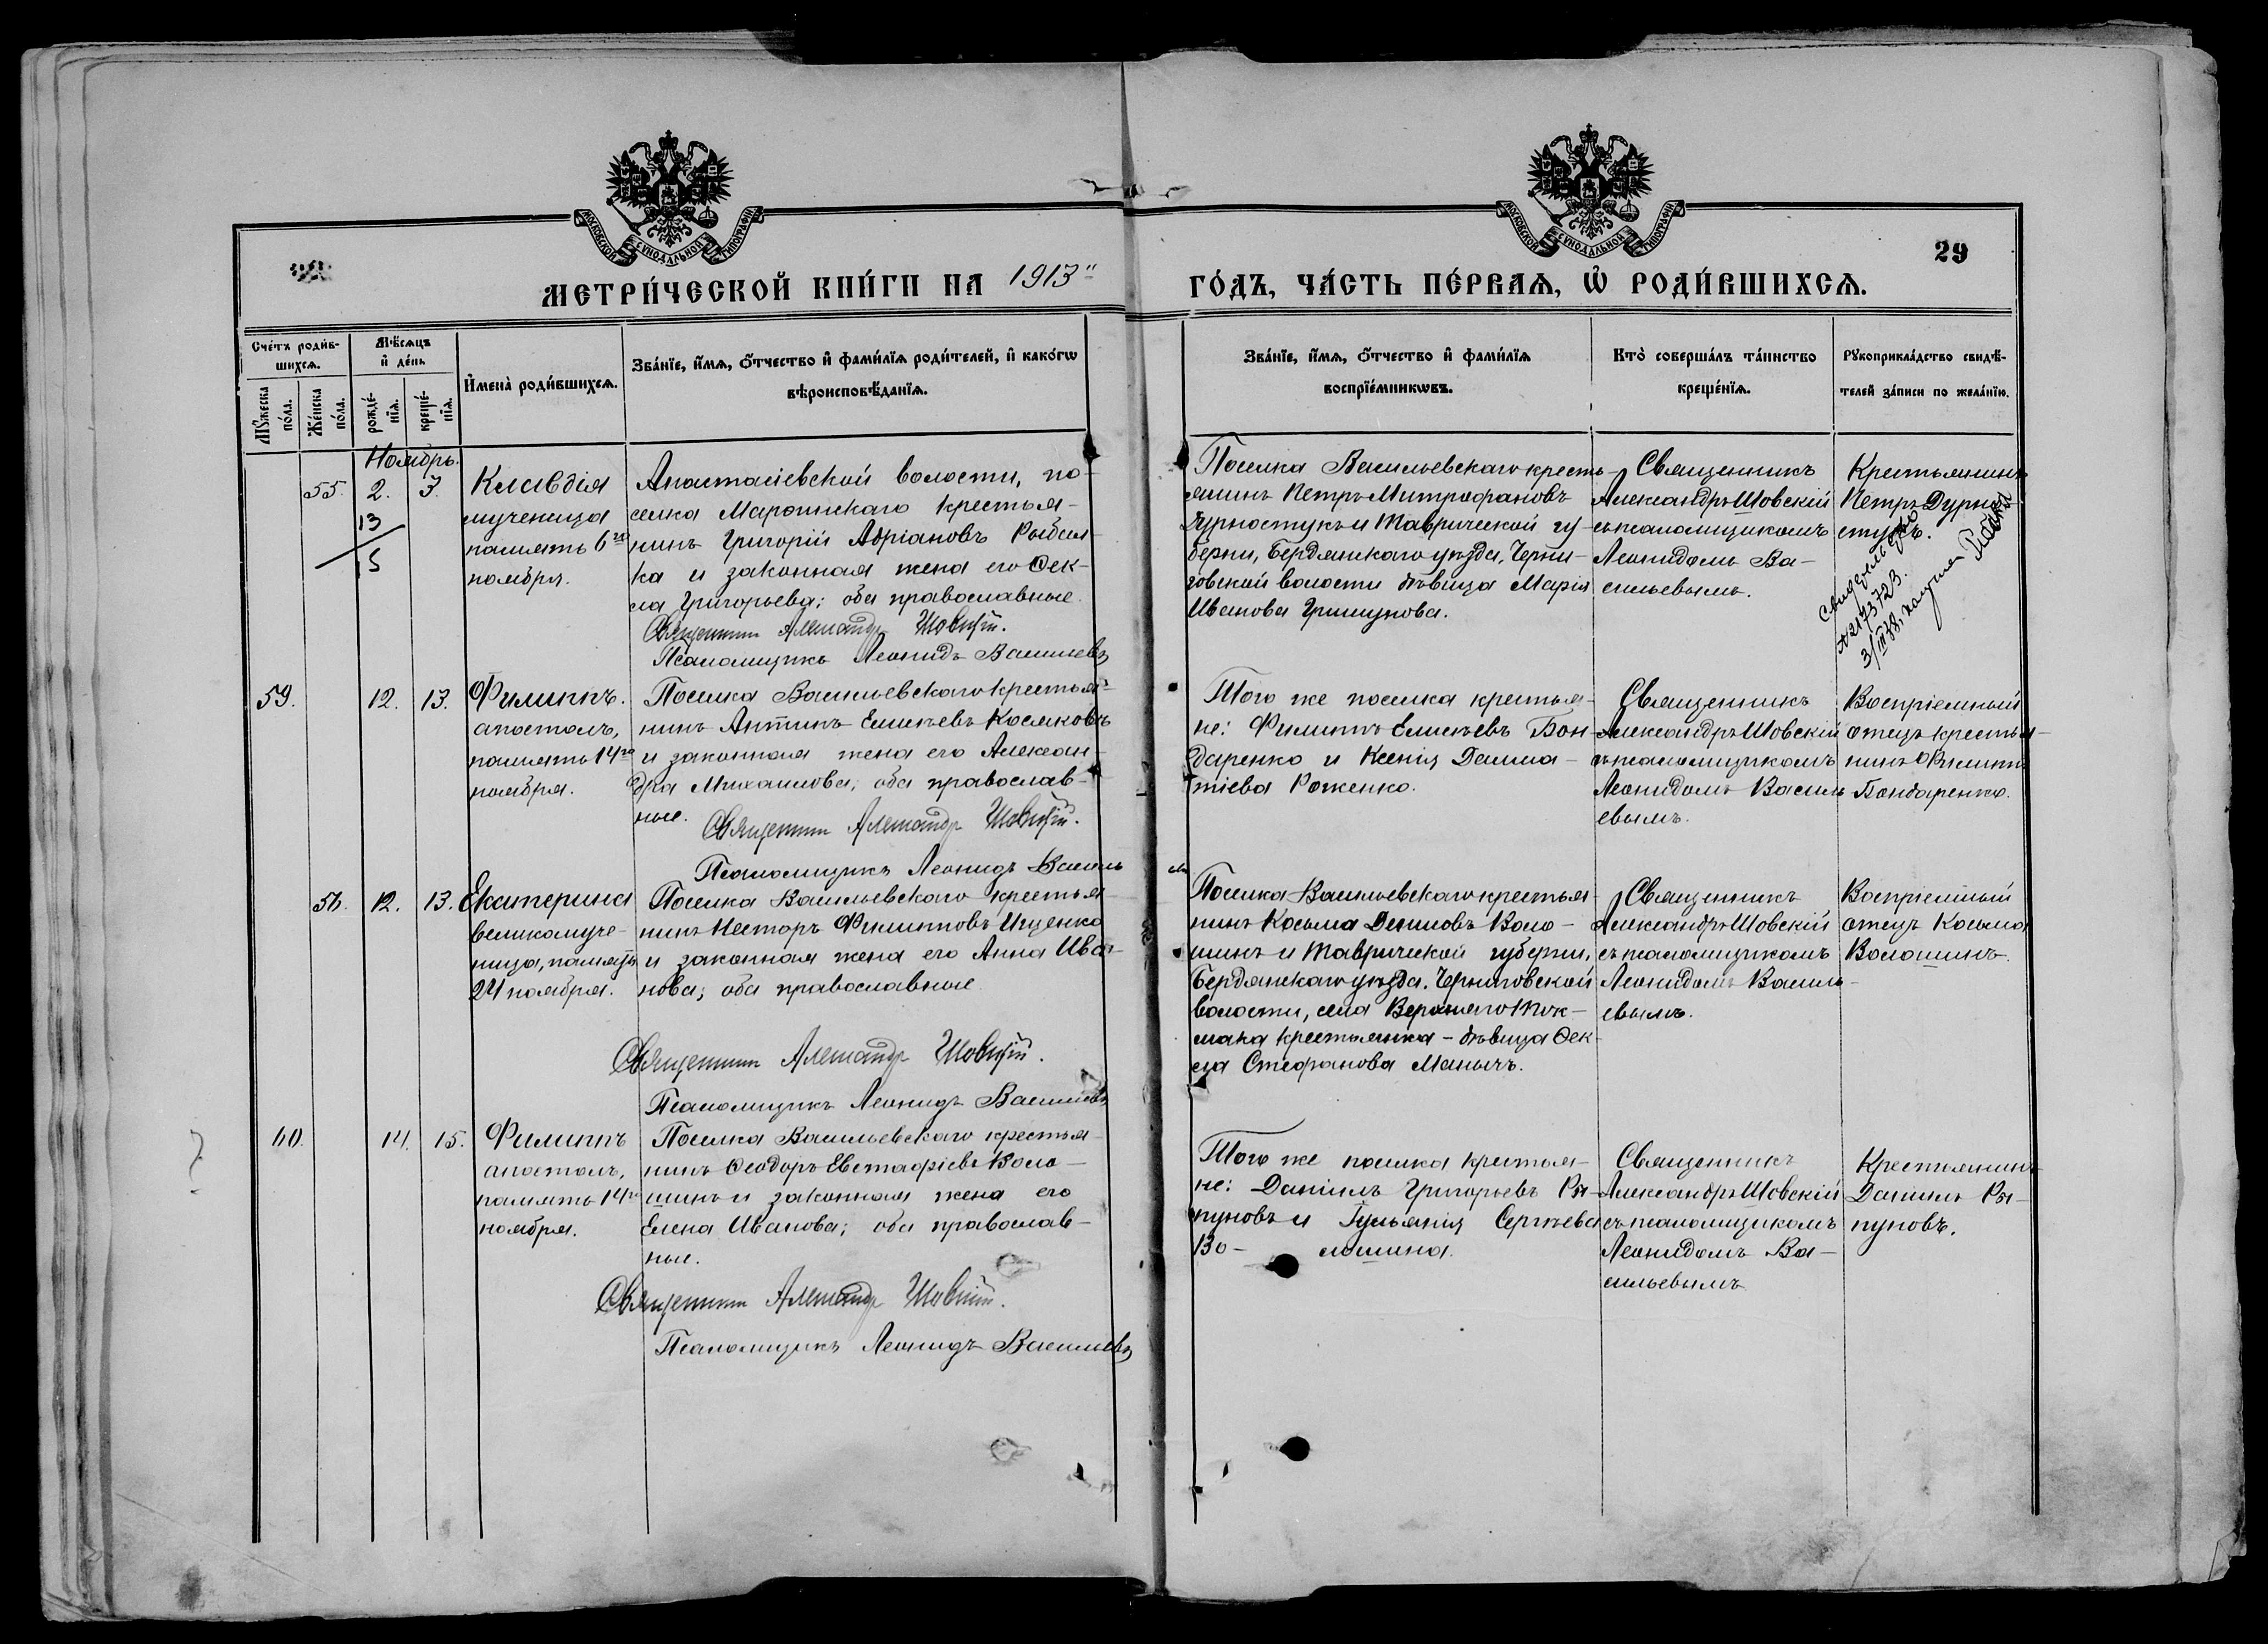 МОСКОВСКОЙ СѴНОДАЛЬНОЙ ТИПОГРАФІИ
МОСКОВСКОЙ СѴНОДАЛЬНОЙ ТИПОГРАФІИ
29
МЕТРИ́ЧЕСКОЙ КНИ́ГИ НА 1913"
ГО́ДЪ, ЧА́СТЬ ПЕ́РВАѦ, Ѡ҆ РОДИ́ВШИХСѦ.
Сче́тъ роди́в-
шихсѧ.
Мꙋ́жеска
по́ла.
Же́нска
по́ла.
Мѣ́сѧцъ
и҆ де́нь
рожде́-
нїѧ.
креще́-
нїѧ.
И҆мена̀ роди́вшихсѧ.
Зва́нїе, и҆́мѧ, ѻ҆́тчество и҆ фами́лїѧ роди́телей, и҆ како́гѡ
вѣроисповѣ́данїѧ.
Зва́нїе, и҆́мѧ, ѻ҆́тчество и҆ фами́лїѧ
воспрїе́мникѡвъ.
Кто̀ соверша́лъ та́инство
креще́нїѧ.
Рꙋкоприкла́дство свидѣ́-
телей за́писи по жела́нїю.
Ноябрь.
55. 2. 3.
13
15
Клавдія
мученица
память 6го
ноября.
Анастасіевской волости, по-
селка Мароинскаго крестья-
нинъ Григорій Адріановъ Рыбал-
ка и законная жена его Ѳек-
ла Григорьева; оба православные
Священник Александр Шовскій.
Псаломщикъ Леонидъ Васильевъ
Поселка Васильевскаго кресть-
янинъ Петръ Митрофановъ
Дурностукъ и Таврической гу-
берніи, Бердянскаго уѣзда, Черни-
говской волости дѣвица Марія
Иванова Гришунова.
Священникъ
Александръ Шовскій
съ псаломщикомъ
Леонидомъ Ва-
сильевымъ.
Крестьянинъ
Петръ Дурно-
стукъ.
№ 2173723.
3/III 38, получил
59. 12. 13.
Филиппъ.
апостолъ,
память 14го
ноября.
Поселка Васильевскаго крестья-
нинъ Антипъ Елисѣевъ Косяковъ
и законная жена его Алексан-
дра Михаилова; оба православ-
ные.
Священник Александр Шовскій.
Псаломщикъ Леонидъ Василь
евъ
Того же поселка крестья-
не: Филиппъ Елисѣевъ Бон-
даренко и Ксенія Далма-
тіева Роженко.
Священникъ
Александръ Шовскій
съ псаломщикомъ
Леонидомъ Василь
евымъ.
Воспріемный
отецъ крестья-
нинъ Филиппъ
Бондаренко.
56. 12. 13.
Екатерина
великомуче-
ница, память
24 ноября.
Поселка Васильевскаго крестья
нинъ Несторъ Филипповъ Ищенко
и законная жена его Анна Ива-
нова; оба православные
Священник Александр Шовскій.
Псаломщикъ Леонидъ Васильевъ
Поселка Васильевскаго крестья
нинъ Косьма Деншовъ Воло-
шинъ и Таврической губерніи,
Бердянскаго уѣзда. Черниговской
волости, села Верхняго Ток-
мака крестьянка - дѣвица Ѳек-
ла Стефанова Маничъ.
Священникъ
Александръ Шовскій
съ псаломщикомъ
Леонидомъ Василь-
евымъ.
Воспріемный
отецъ Косьма
Волошинъ.
60. 14. 15.
Филиппъ
апостолъ,
память 14го
ноября.
Поселка Васильевскаго крестья-
нинъ Ѳеодоръ Евстафіевъ Воло-
шинъ и законная жена его
Елена Иванова; оба православ-
ные.
Священник Александр Шовскій.
Псаломщикъ Леонидъ Васильевъ
Того же поселка крестья-
не: Даніилъ Григорьевъ Ря-
пуновъ и Іульянія Сергѣева
Во- лошина.
Священникъ
Александръ Шовскій
съ псаломщикомъ
Леонидомъ Ва-
сильевымъ
Крестьянинъ
Даніилъ Ря-
пуновъ.